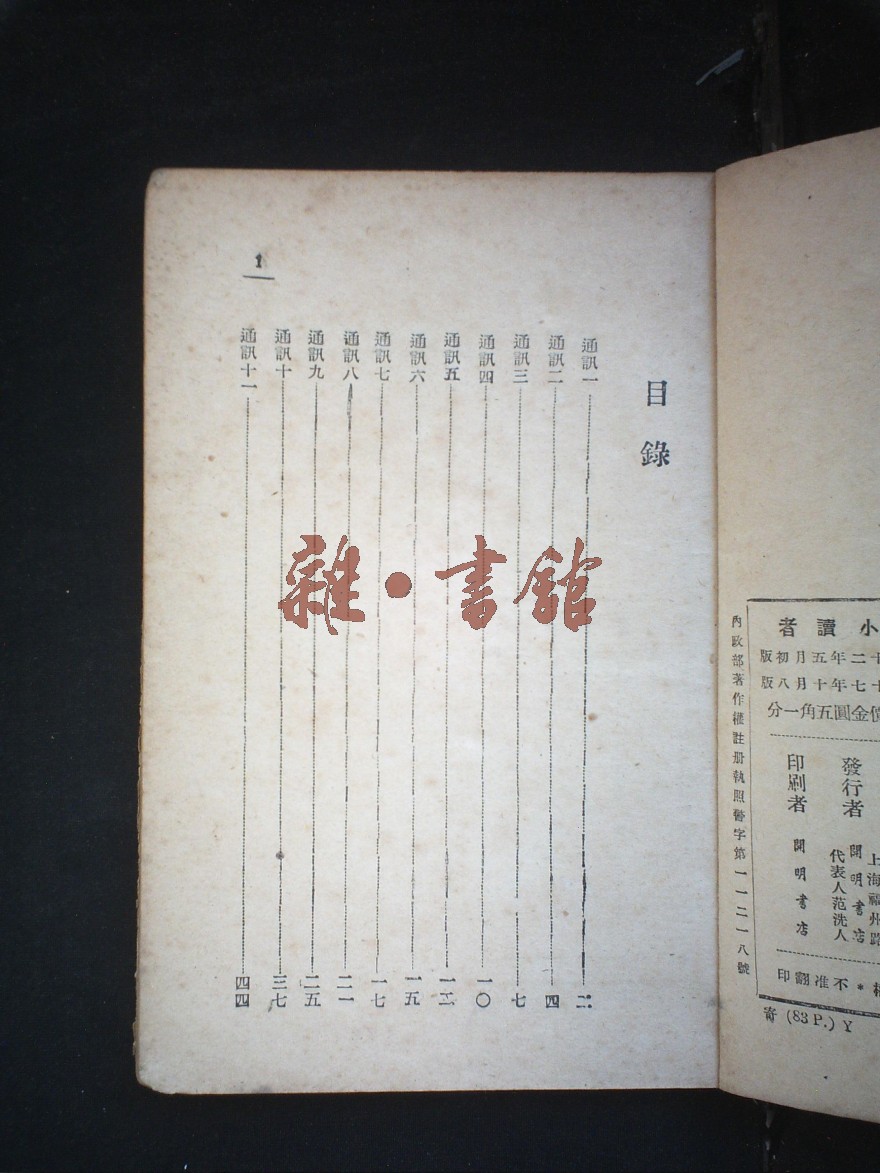 目錄
通訊一 二
通訊二 四
通訊三 七
通訊四 一〇
通訊五 一二
通訊六 一五
通訊七 一七
通訊八 二一
通訊九 二五
通訊十 三七
通訊十一 四四
1
雜·書館
小讀者
十二年五月初版
十七年十月八版
價金圓五角一分
發行者
上海福州路
開明書店
代表人范洗人
印刷者 開明書店
*不准翻印
內政部著作權註册執照警字第一一二一八號
寄 (83 P.) Y